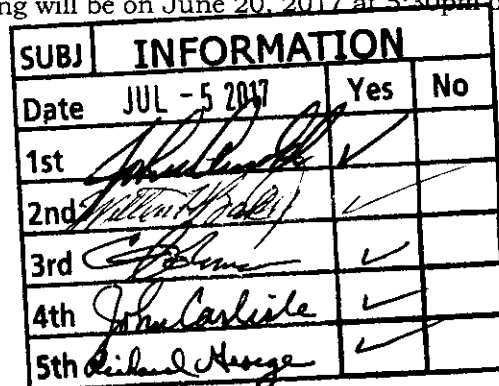 ng will be on June 20, 2017 at 5:30pm
SUBJ INFORMATION
Date JUL - 5 2017 Yes No
1st ✓
2nd ✓
3rd ✓
4th John Carlisle ✓
5th Richard ✓